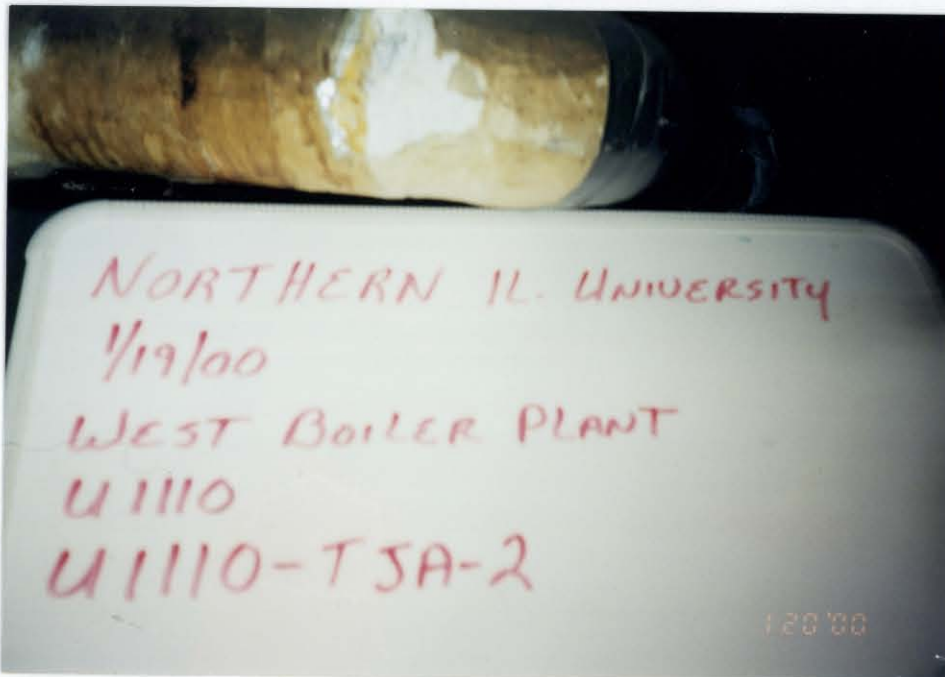 NORTHERN IL. UNIVERSITY
1/19/00
WEST BOILER PLANT
U1110
U1110-TJA-2
1 20 '00